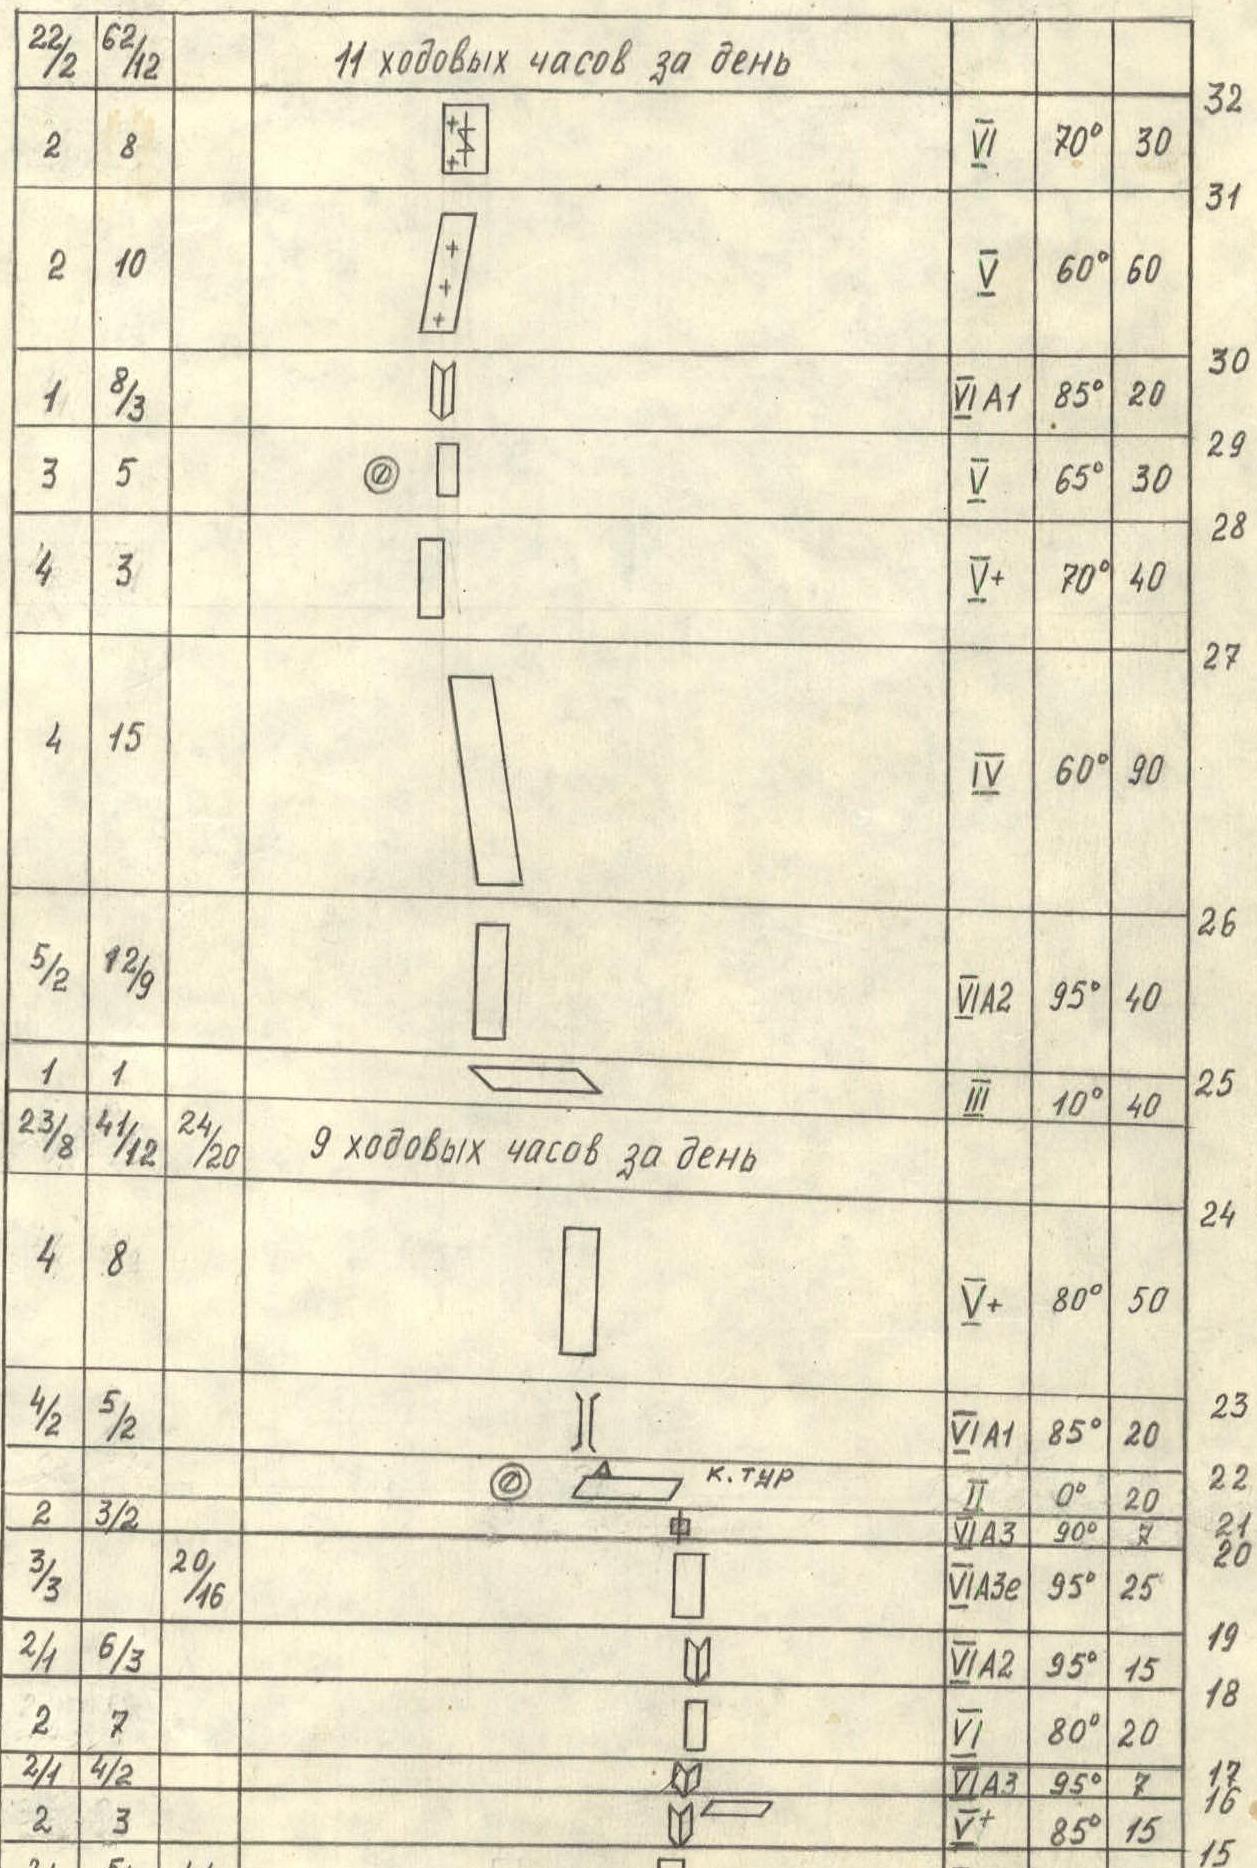 22/2 62/12 11 ходовых часов за день
32
2 8 VI 70° 30
31
2 10 V 60° 60
30
1 8/3 VI A1 85° 20
29
3 5 V 65° 30
28
4 3 V+ 70° 40
27
4 15 IV 60° 90
26
5/2 12/9 VI A2 95° 40
25
1 1 III 10° 40
23/8 41/12 24/20 9 ходовых часов за день
24
4 8 V+ 80° 50
23
4/2 5/2 VI A1 85° 20
22
к. тур II 0° 20
21
2 3/2 VI A3 90° 7
20
3/3 20/16 VI A3e 95° 25
19
2/1 6/3 VI A2 95° 15
18
2 7 VI 80° 20
17
2/1 4/2 VI A3 95° 7
16
2 3 V+ 85° 15
15